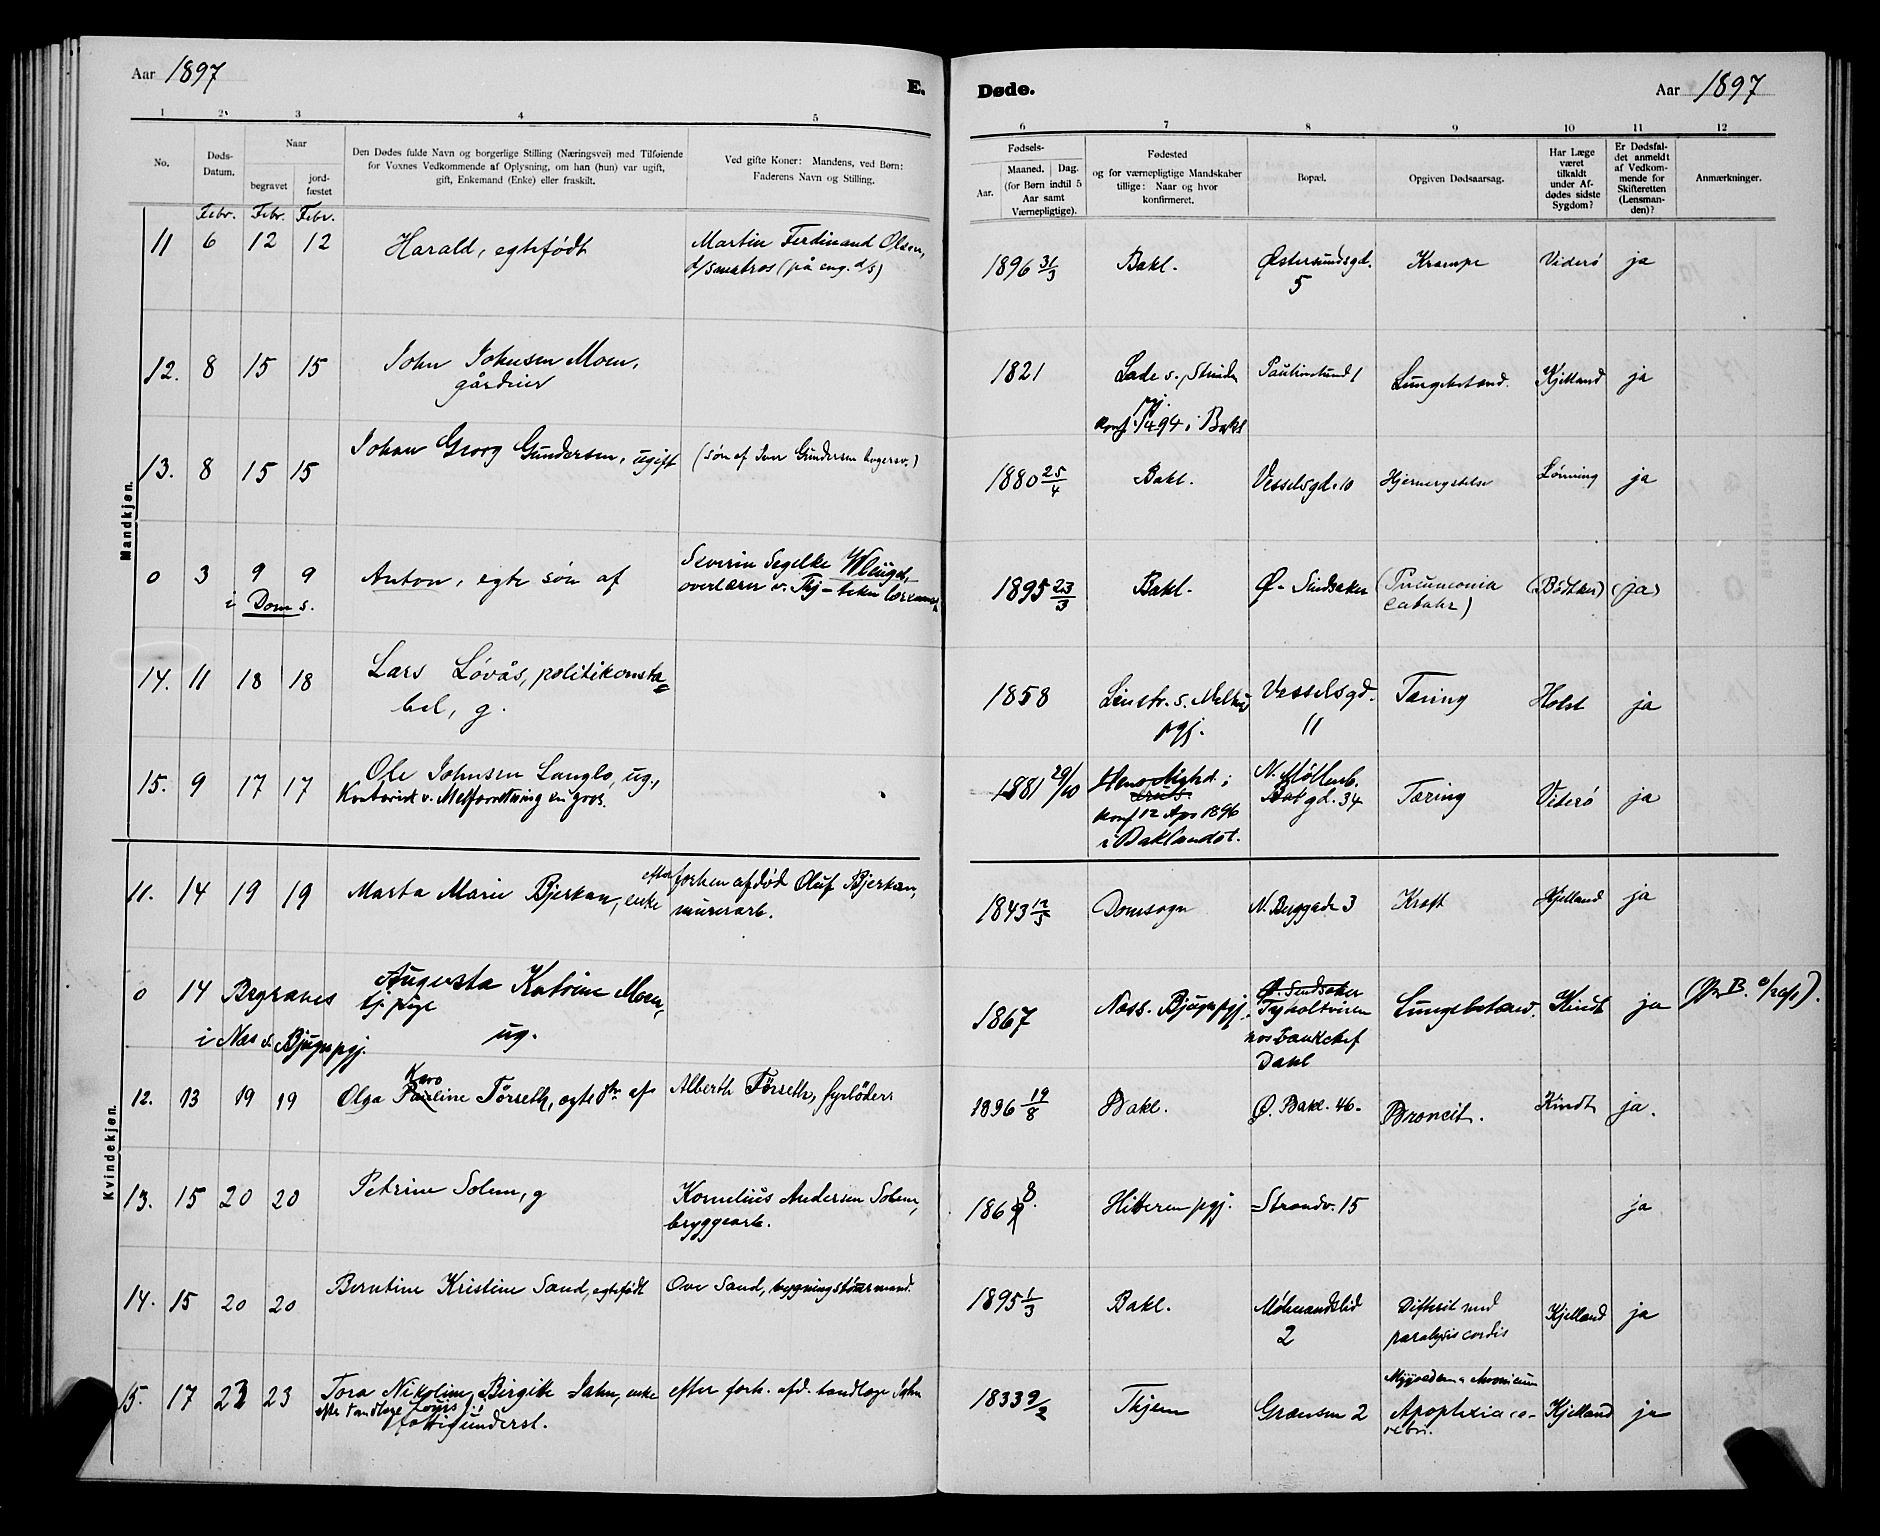 Aar 1897
E.
1 2 3 4 5
No.
Døds-
Datum.
Naar
begravet
jord-
fæstet
Den Dødes fulde Navn og borgerlige Stilling (Næringsvei) med Tilføiende
for Voxnes Vedkommende af Oplysning, om han (hun) var ugift,
gift, Enkemand (Enke) eller fraskilt.
Ved gifte Koner: Mandens, ved Børn:
Faderens Navn og Stilling.
Febr. Febr. Febr.
Mandkjøn.
11 6 12 12 Harald, egtefødt Martin Ferdinand Olsen,
d/smatros (på eng. d/s)
12. 8 15 15 John Johnsen Moen,
gårdeier
13. 8 15 15 Johan Georg Gundersen, ugift (søn af Iver Gundersen
0 3 9 9 Anton, egte søn af Severin Segelke
i Dom s. overlærer v. Thj
14. 11 18 18 Lars Løvås, politikonsta=
bel, g.
15. 9 17 17 Ole Johnsen Langlo, ug.,
Kontorist v.
Kvindekjøn.
11. 14 19 19 Marta Marie Bjerkan, enke efter forhen afdød Oluf Bjerkan,
murerarb.
0 14 Begraves Augusta Katrine Moen,
tj. pige
i Næs s. Bjugn pgj. ug.
12. 13 19 19 Olga Karoline Forseth, egte dtr af Alberth Forseth, fyrbøder
13. 15 20 20 Petrine Solem, g Kornelius Andersen Solem,
bryggearb.
14. 15 20 20 Berntine Kristine Sand, egtefødt Ove Sand, bygningstømmermand.
15. 17 23 23 Tora Nikoline Birgitte Jahn, enke efter forh. afd. tandlæge Jahn
efter tandlæge Louis J.
fattigunderst.
Døde.
Aar 1897
6 7 8 9 10 11 12
Fødsels-
Aar.
Maaned. Dag.
(for Børn indtil 5
Aar samt
Værnepligtige).
Fødested
og for værnepligtige Mandskaber
tillige: Naar og hvor
konfirmeret.
Bopæl.
Opgiven Dødsaarsag.
Har Læge
været
tilkaldt
under Af-
dødes sidste
Sygdom?
Er Dødsfal-
det anmeldt
af Vedkom-
mende for
Skifteretten
(Lensman-
den)?
Anmærkninger.
1896 31/3 Bakl. Østersundsgd. Krampe Viderö ja
5
1821 Lade s., Strinden Paulinelund 1 Lungebetænd. Kjelland ja
pgj.
konf. 1494 i Bakl
1880 25/4 Bakl. Vesselsgd. 10 Hjernerystelse Lønning ja
1895 23/3 Bakl. Ø. Sindsaker (Pneumonia (Bødtker) (ja)
1858 Leinstr. s. Melhus Vesselsgd. Tæring Holst ja
pgj. 11
1881 29/10 i N. Møllenb. Tæring Viderö ja
konf 12 Apr 1896 gd. 34
i Baklandet.
1843 12/3 Domsogn N. Berggade 3 Kræft Kjelland ja
1867 Næss. Bjugn pgj. Ø. Sindsaker Lungebetænd. Kindt ja
Tyholtveien
hos Bankchef
Dahl
1896 19/8 Bakl. Ø. Bakl. 46. Broncit. Kindt ja.
1868. Hitteren pgj. Strandv. 15 ja
1895 1/3 Bakl. Møllmandslid Difterit med Kjelland ja
2 paralysis cordis
1833 9/2 Thjem Grænsen 2 Myxoedema chronicum
Apoplexia ce-
rebri. Kjelland ja